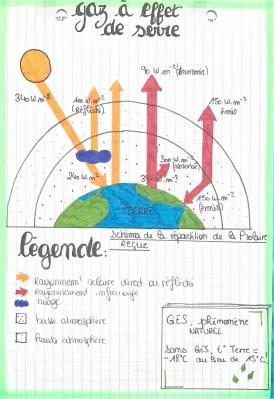 gaz à effet
de serre
90 W.m⁻² (transmis)
340 W.m⁻²
100 W.m⁻²
(réfléchi)
150 W.m⁻²
émis
300 W.m⁻²
(absorbé)
240 W.m⁻²
390 W.m⁻²
150 W.m⁻²
(émis)
TERRE
Schéma de la répartition de la P solaire
reçue
légende:
rayonnement solaire direct ou réfléchi
rayonnement infrarouge
nuage
basse atmosphère
Haute atmosphère
GES, phénomène
NATUREL
Sans GES, t° Terre =
-18°C au lieu de 15°C.